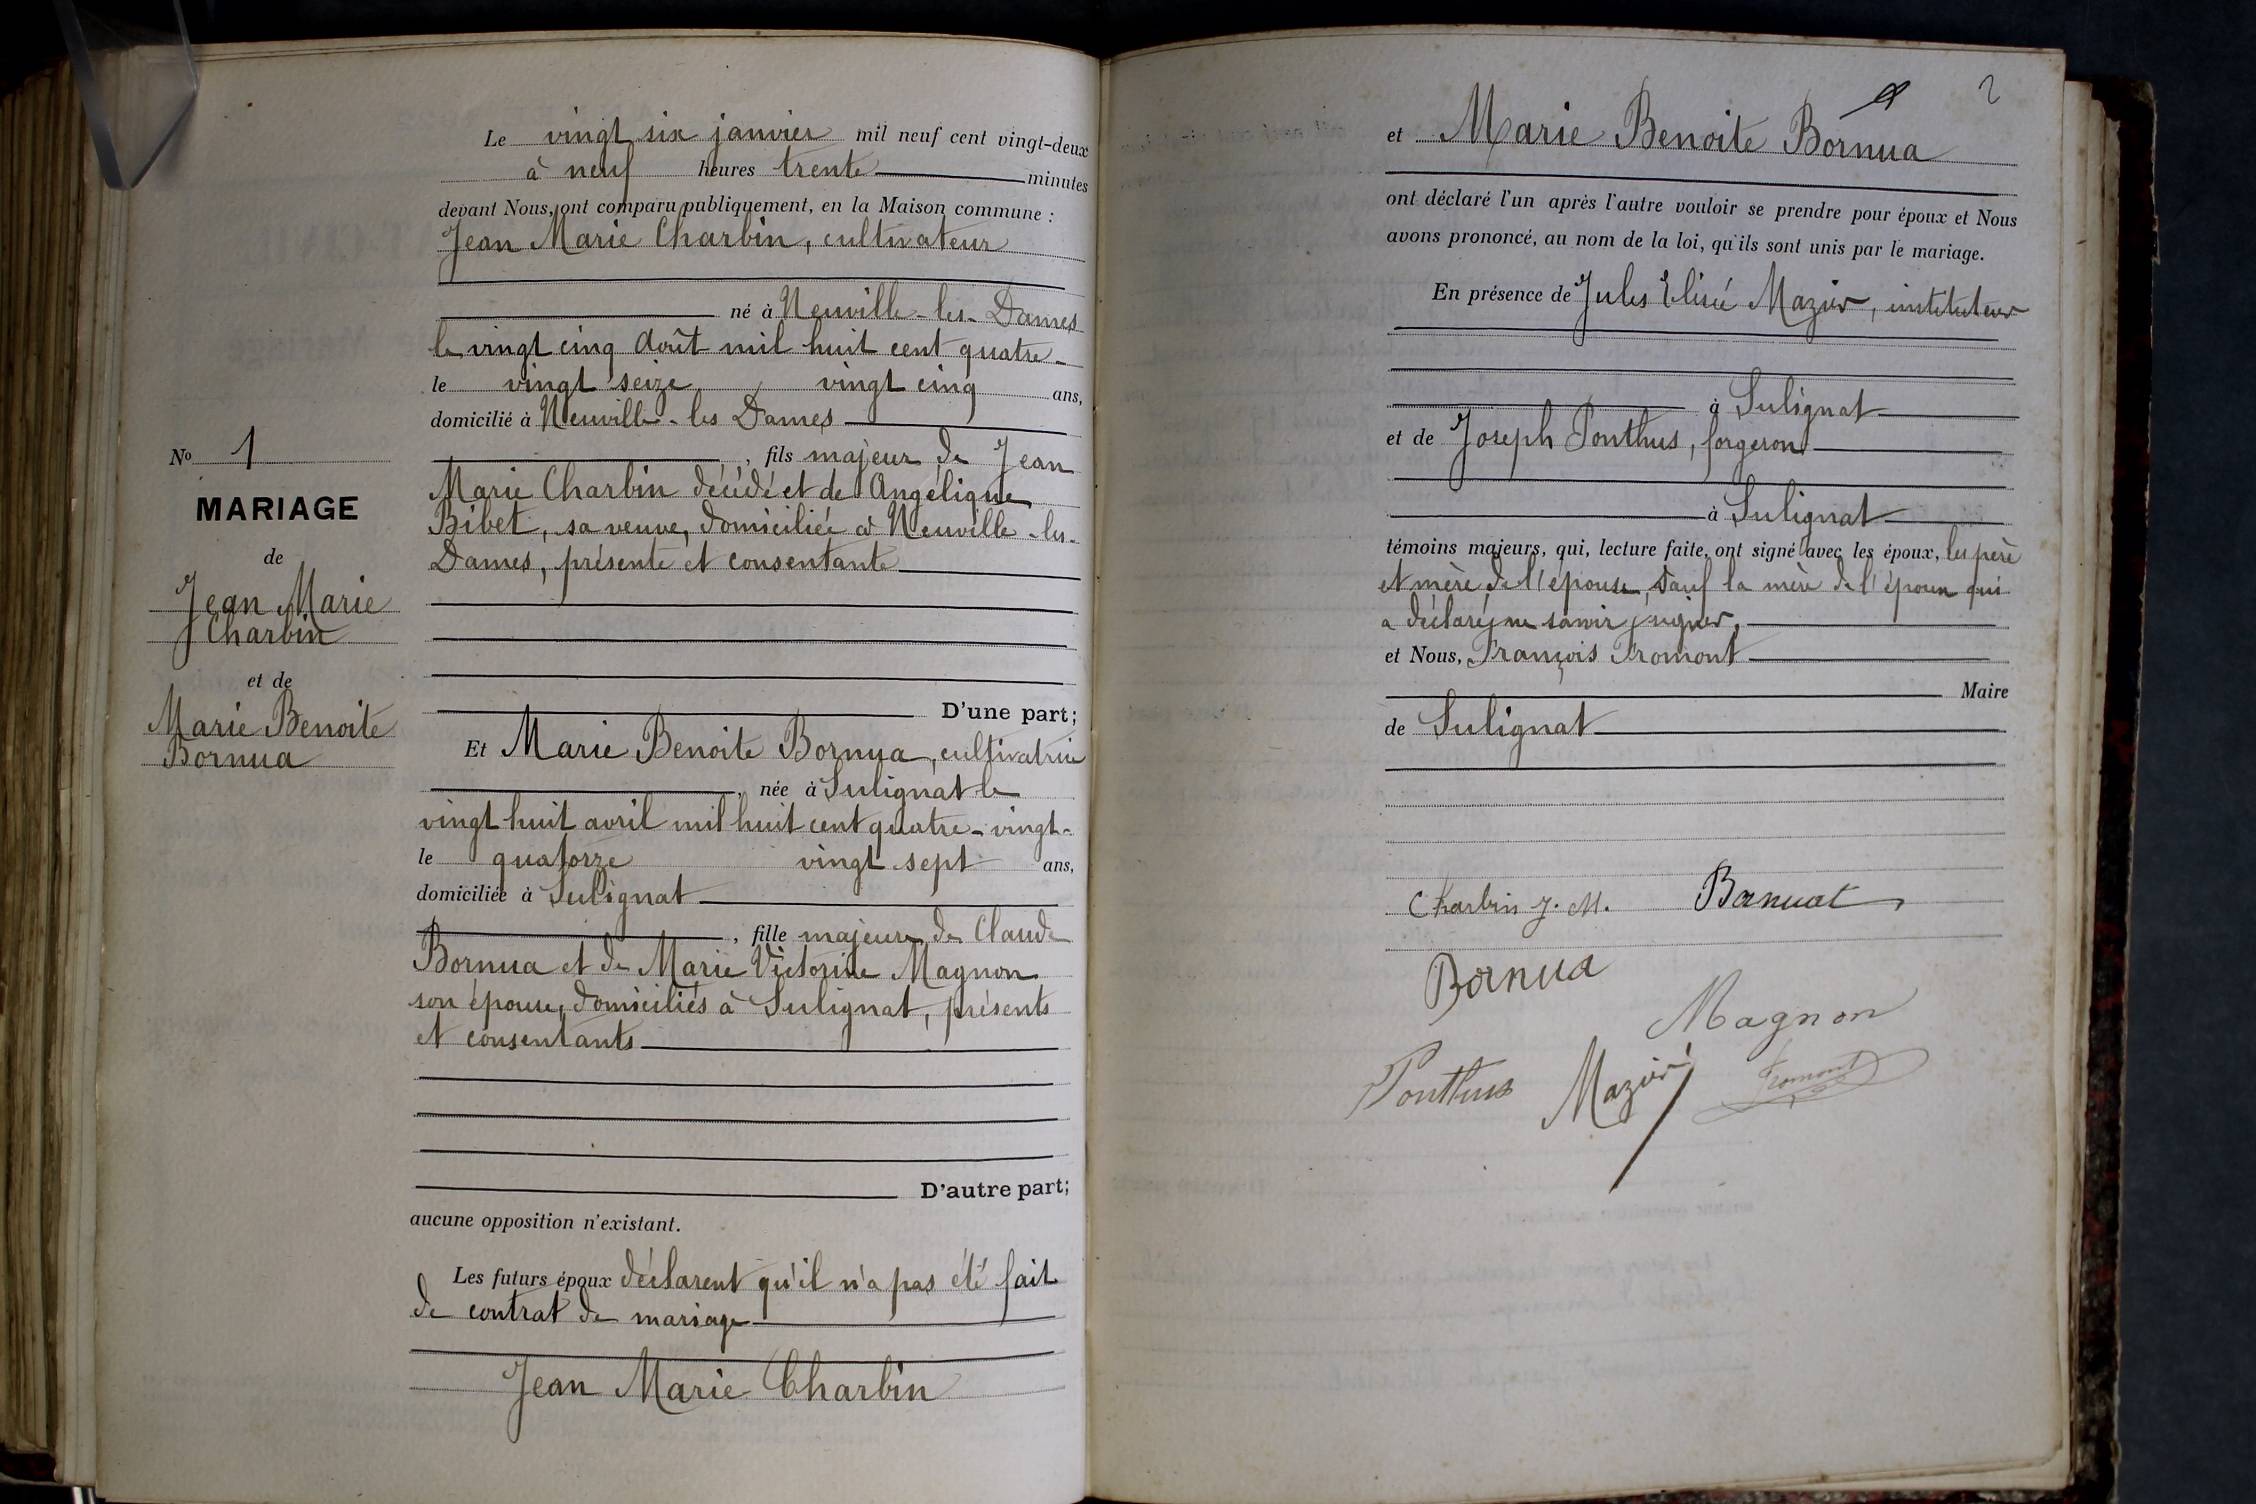 Le vingt six janvier mil neuf cent vingt-deux
à neuf heures trente minutes
devant Nous, ont comparu publiquement, en la Maison commune :
Jean Marie Charbin, cultivateur
né à Neuville-les-Dames
le vingt cinq août mil huit cent quatre-
le vingt seize, vingt cinq ans,
domicilié à Neuville-les Dames
, fils majeur de Jean
Marie Charbin décédé et de Angélique
Bibet, sa veuve, domiciliée à Neuville-les-
Dames, présente et consentante
D'une part;
Et Marie Benoite Bornua, cultivatrice
, née à Sulignat le
vingt huit avril mil huit cent quatre-vingt-
le quatorze vingt sept ans,
domiciliée à Sulignat
, fille majeure de Claude
Bornua et de Marie Victorine Magnon
son épouse, domiciliés à Sulignat, présents
et consentants
D'autre part;
aucune opposition n'existant.
Les futurs époux déclarent qu'il n'a pas été fait
de contrat de mariage
Jean Marie Charbin
No 1
MARIAGE
de
Jean Marie
Charbin
et de
Marie Benoite
Bornua
2
et Marie Benoite Bornua
ont déclaré l'un après l'autre vouloir se prendre pour époux et Nous
avons prononcé, au nom de la loi, qu'ils sont unis par le mariage.
En présence de Jules Elisée Mazier, instituteur
à Sulignat
et de Joseph Ponthus, forgeron
à Sulignat
témoins majeurs, qui, lecture faite, ont signé avec les époux, les père
et mère de l'épouse, sauf la mère de l'époux qui
a déclaré ne savoir signer,
et Nous, François Fromont
Maire
de Sulignat
Charbin J. M. Bornuat
Bornua
Magnon
Ponthus Mazier Fromont